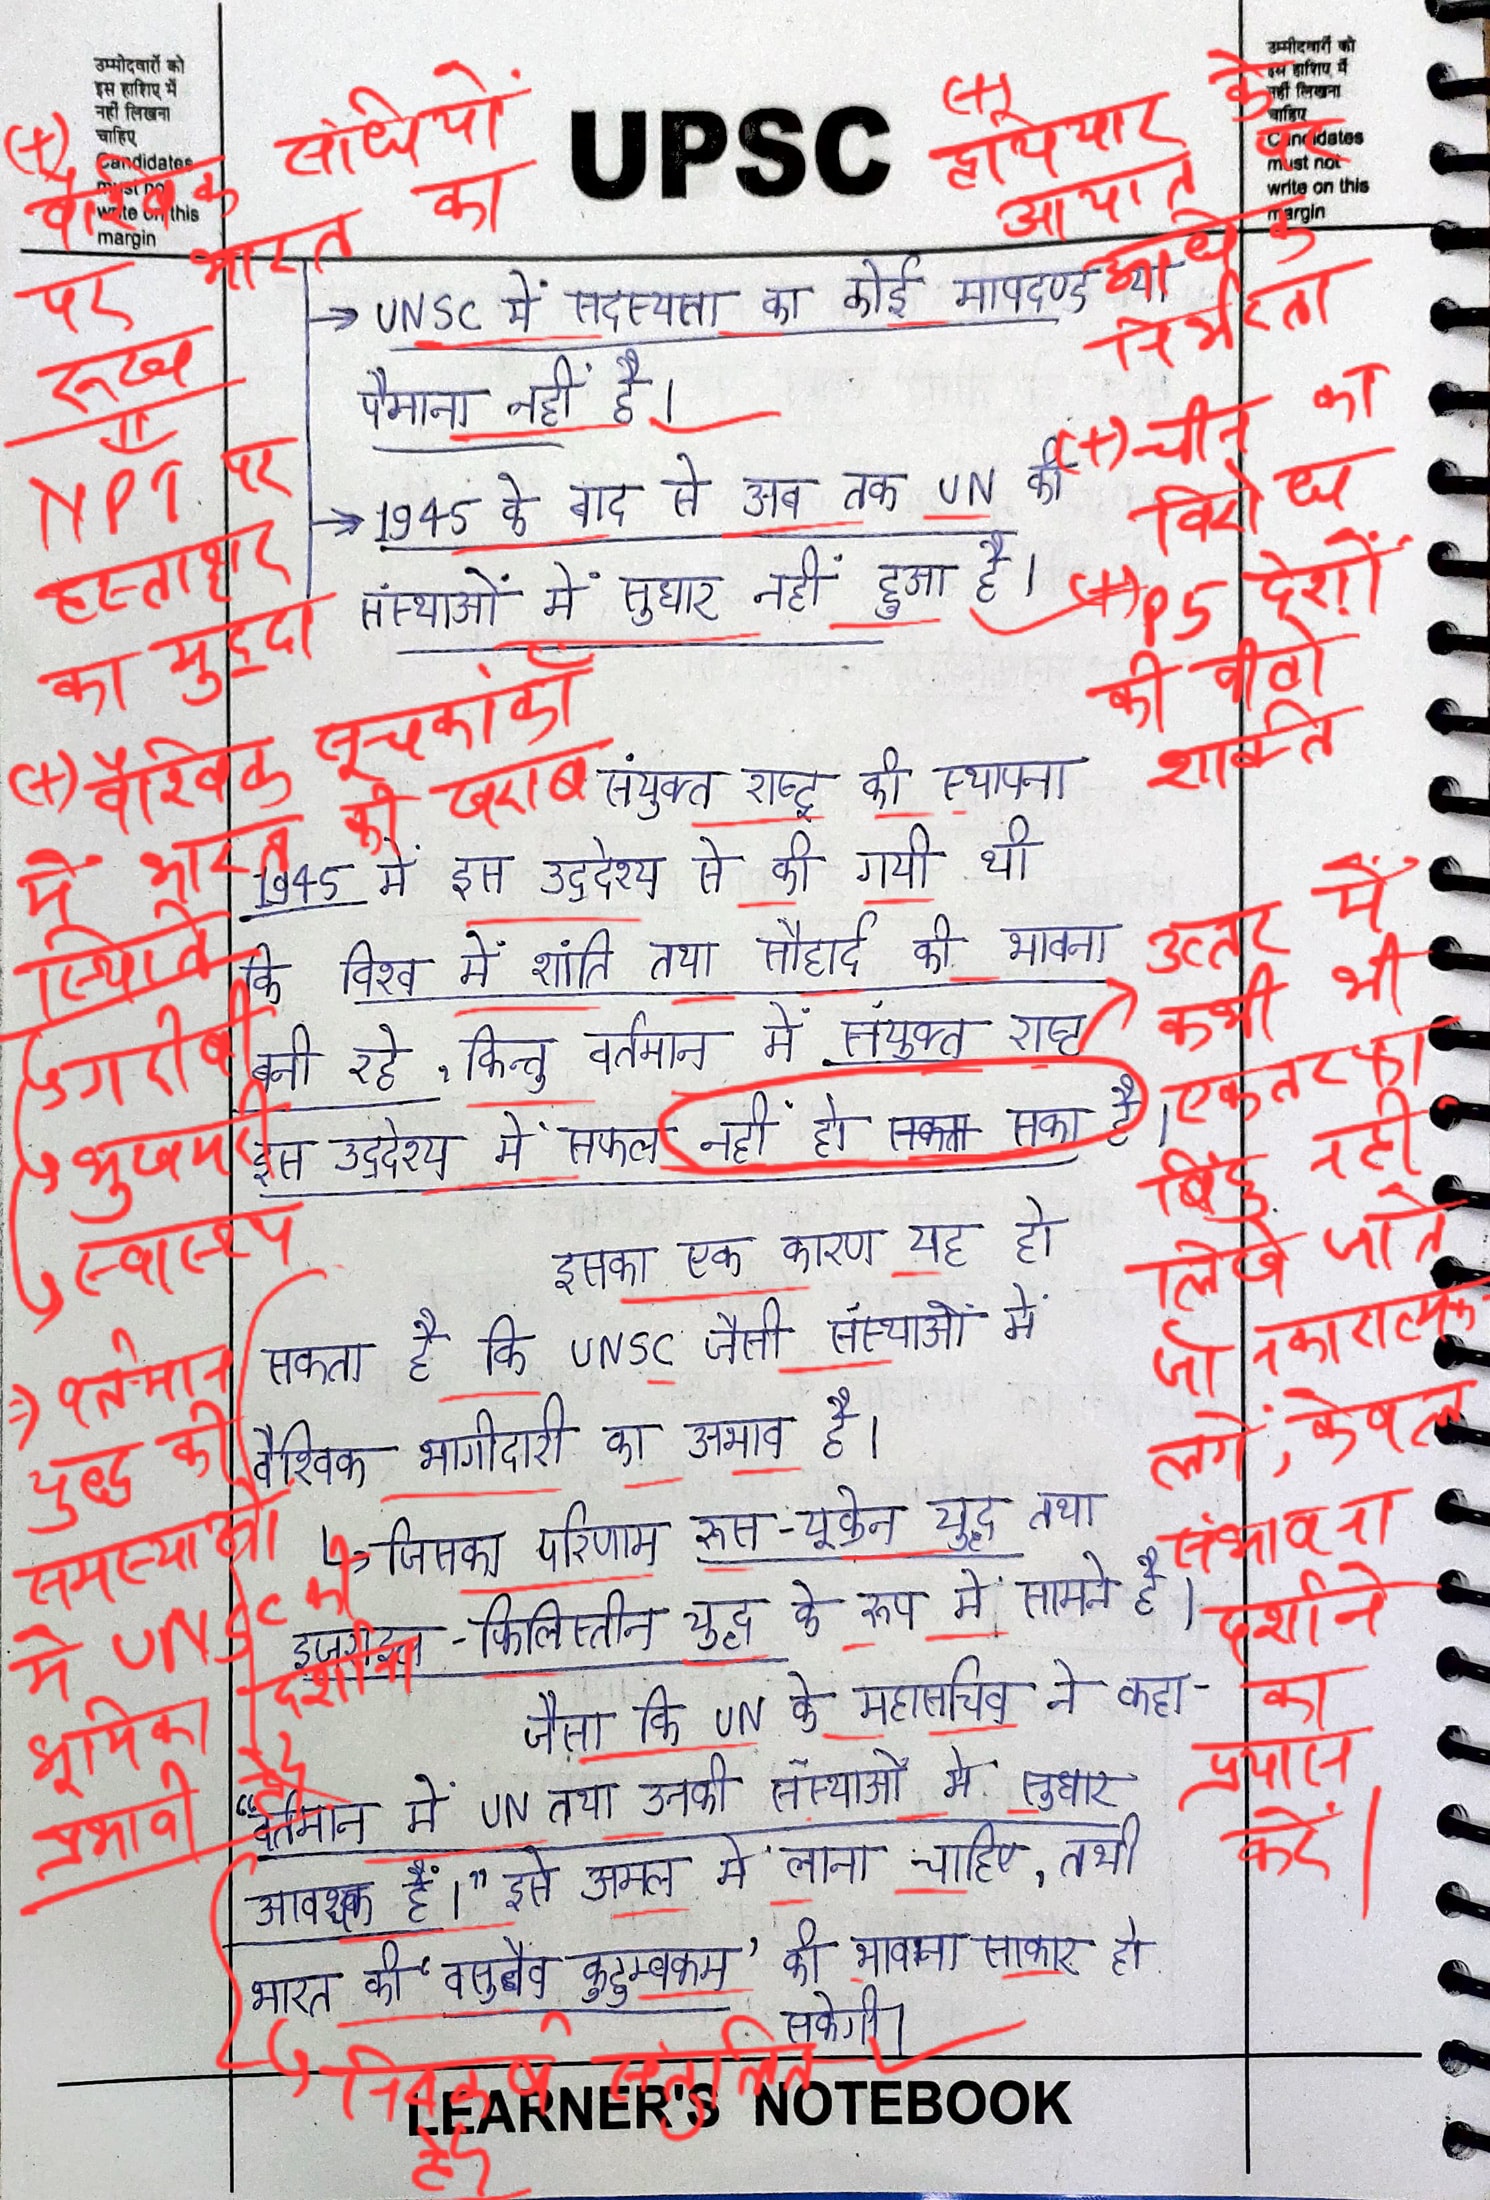 उम्मीदवारों को
इस हाशिए में
नहीं लिखना
चाहिए
Candidates
must not
write on this
margin
UPSC
उम्मीदवारों को
इस हाशिए में
नहीं लिखना
चाहिए
Candidates
must not
write on this
margin
(+) वैश्विक संधियों
पर भारत का
रूख
NPT पर
हस्ताक्षर
का मुद्दा
(+) वैश्विक सूचकांकों
में भारत की खराब
स्थिति
↳ गरीबी
↳ भुखमरी
↳ स्वास्थ्य
(+) हथियार के
आयात पर
अधिक
निर्भरता
(+) चीन का
विरोध
(+) P5 देशों
की वीटो
शक्ति
→ UNSC में सदस्यता का कोई मापदण्ड या
पैमाना नहीं है।
→ 1945 के बाद से अब तक UN की
संस्थाओं में सुधार नहीं हुआ है।
संयुक्त राष्ट्र की स्थापना
1945 में इस उद्देश्य से की गयी थी
कि विश्व में शांति तथा सौहार्द की भावना
बनी रहे, किन्तु वर्तमान में संयुक्त राष्ट्र
इस उद्देश्य में सफल नहीं हो सकता सका है।
इसका एक कारण यह हो
सकता है कि UNSC जैसी संस्थाओं में
वैश्विक भागीदारी का अभाव है।
↳ जिसका परिणाम रूस-यूक्रेन युद्ध तथा
इजराइल-फिलिस्तीन युद्ध के रूप में सामने है।
जैसा कि UN के महासचिव ने कहा-
"वर्तमान में UN तथा उनकी संस्थाओं में सुधार
आवश्यक है।" इसे अमल में लाना चाहिए, तभी
भारत की 'वसुधैव कुटुम्बकम' की भावना साकार हो
सकेगी।
उत्तर में
कभी भी
एकतरफा
बिंदु नहीं
लिखे जाते
जो नकारात्मक
लगें, केवल
संभावना
दर्शाने
का
प्रयास
करें।
⇒ वर्तमान
युद्ध की
समस्याओं
में UNSC की
भूमिका दर्शाना
प्रभावी है
↳ निष्कर्ष संतुलित
है
LEARNER'S NOTEBOOK